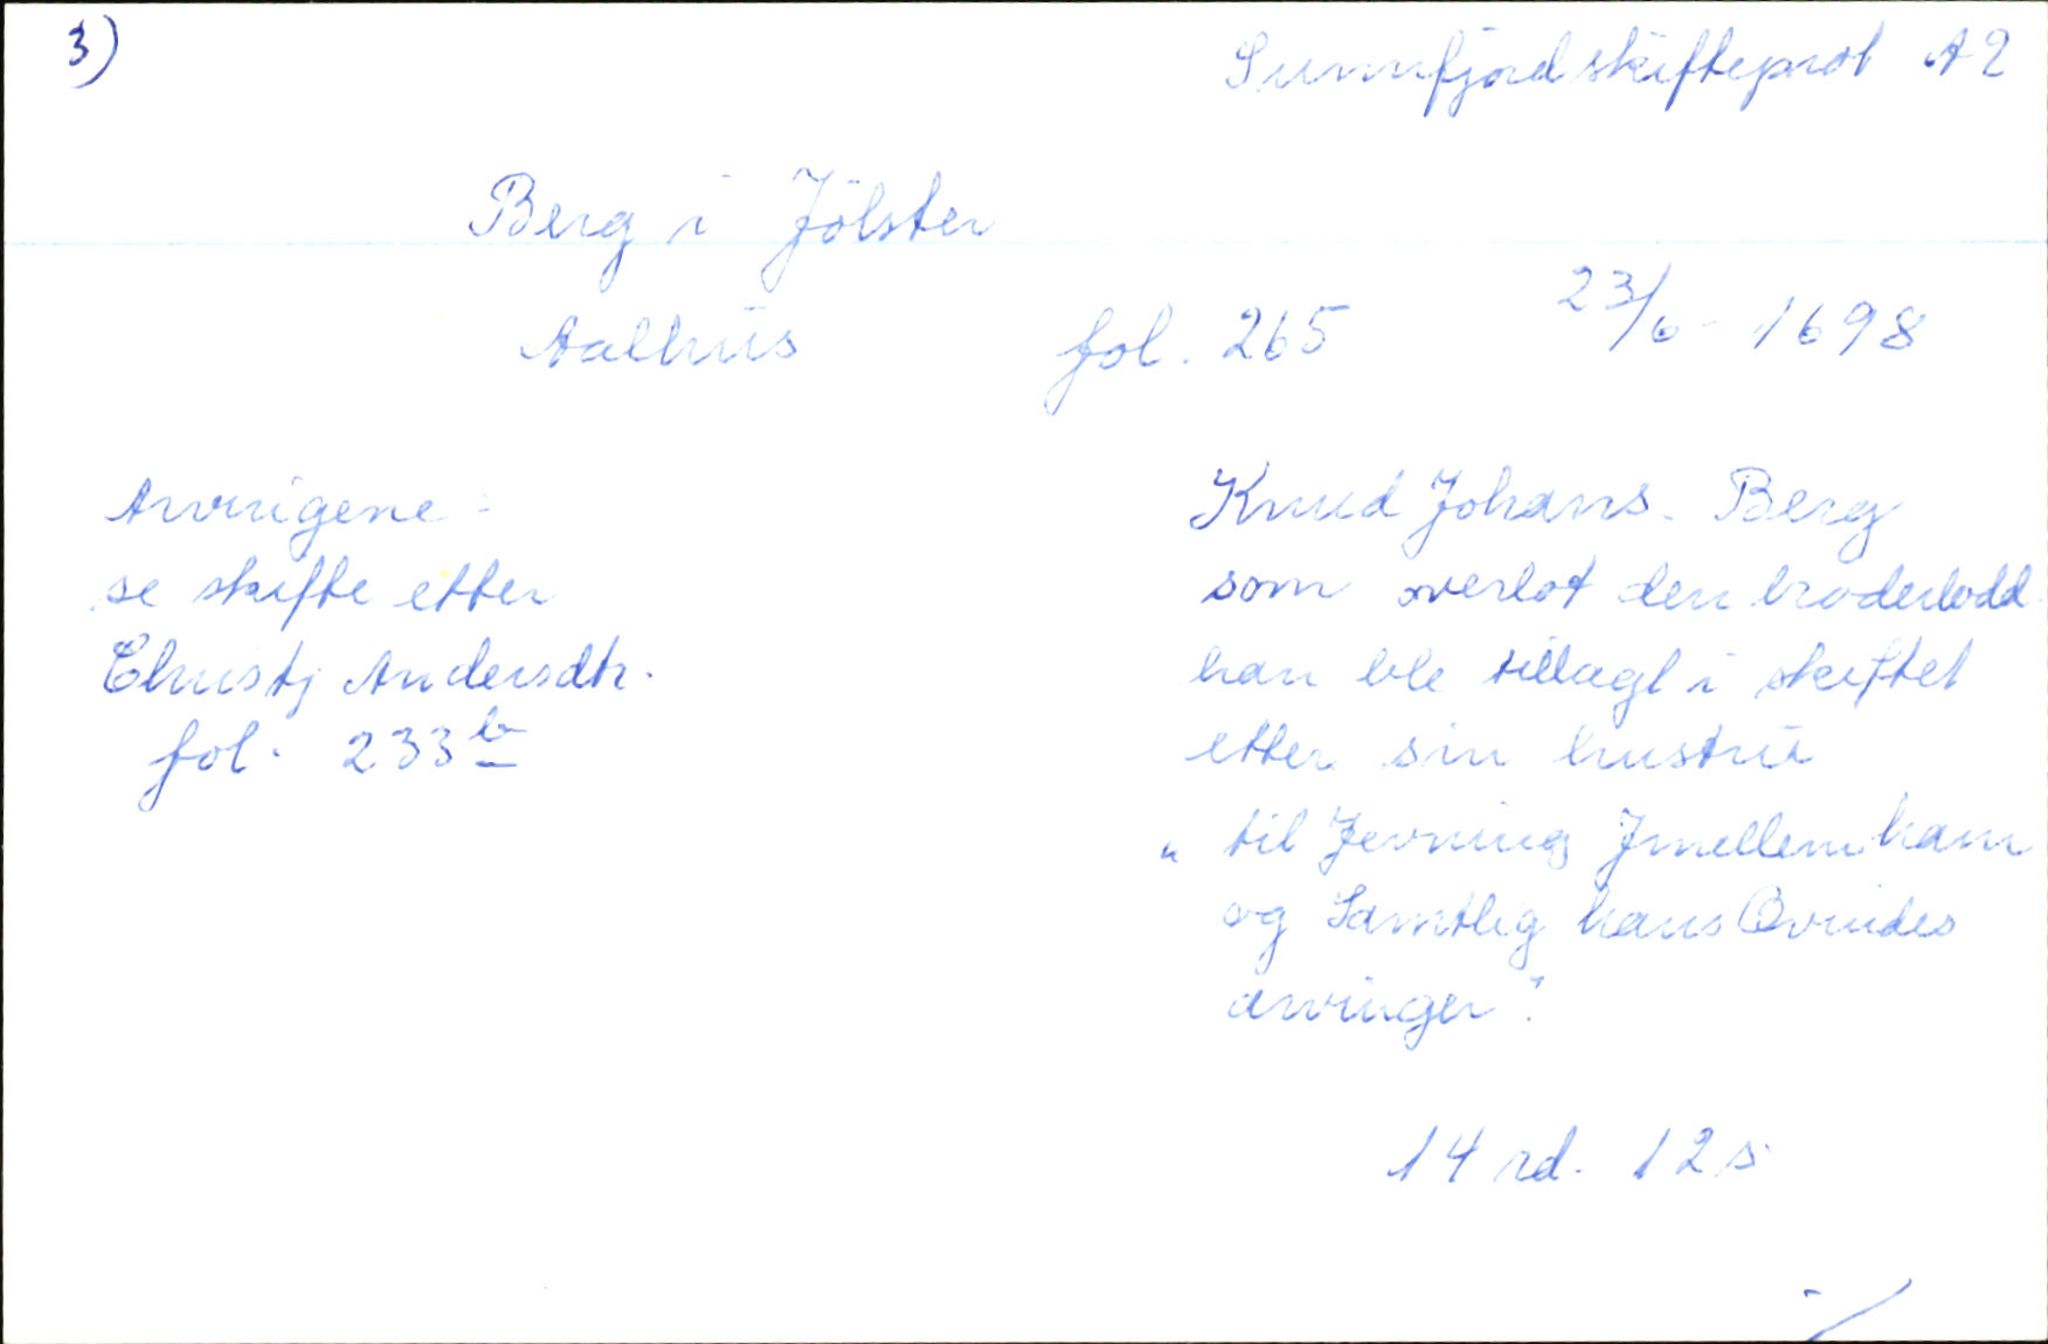 3)
Sunnfjord skifteprot A 2
Berg i Jølster
Aalhus fol. 265 23/6 - 1698
Arvingene :
se skifte etter
Christj Andersdtr.
fol. 233 b
Knud Johans. Berg
som overlot den broderlodd
han ble tillagt i skiftet
etter sin hustru
" til Jevning Jmellem ham
og Samtlig hans Qvindes
arvinger".
14 rd. 12 s